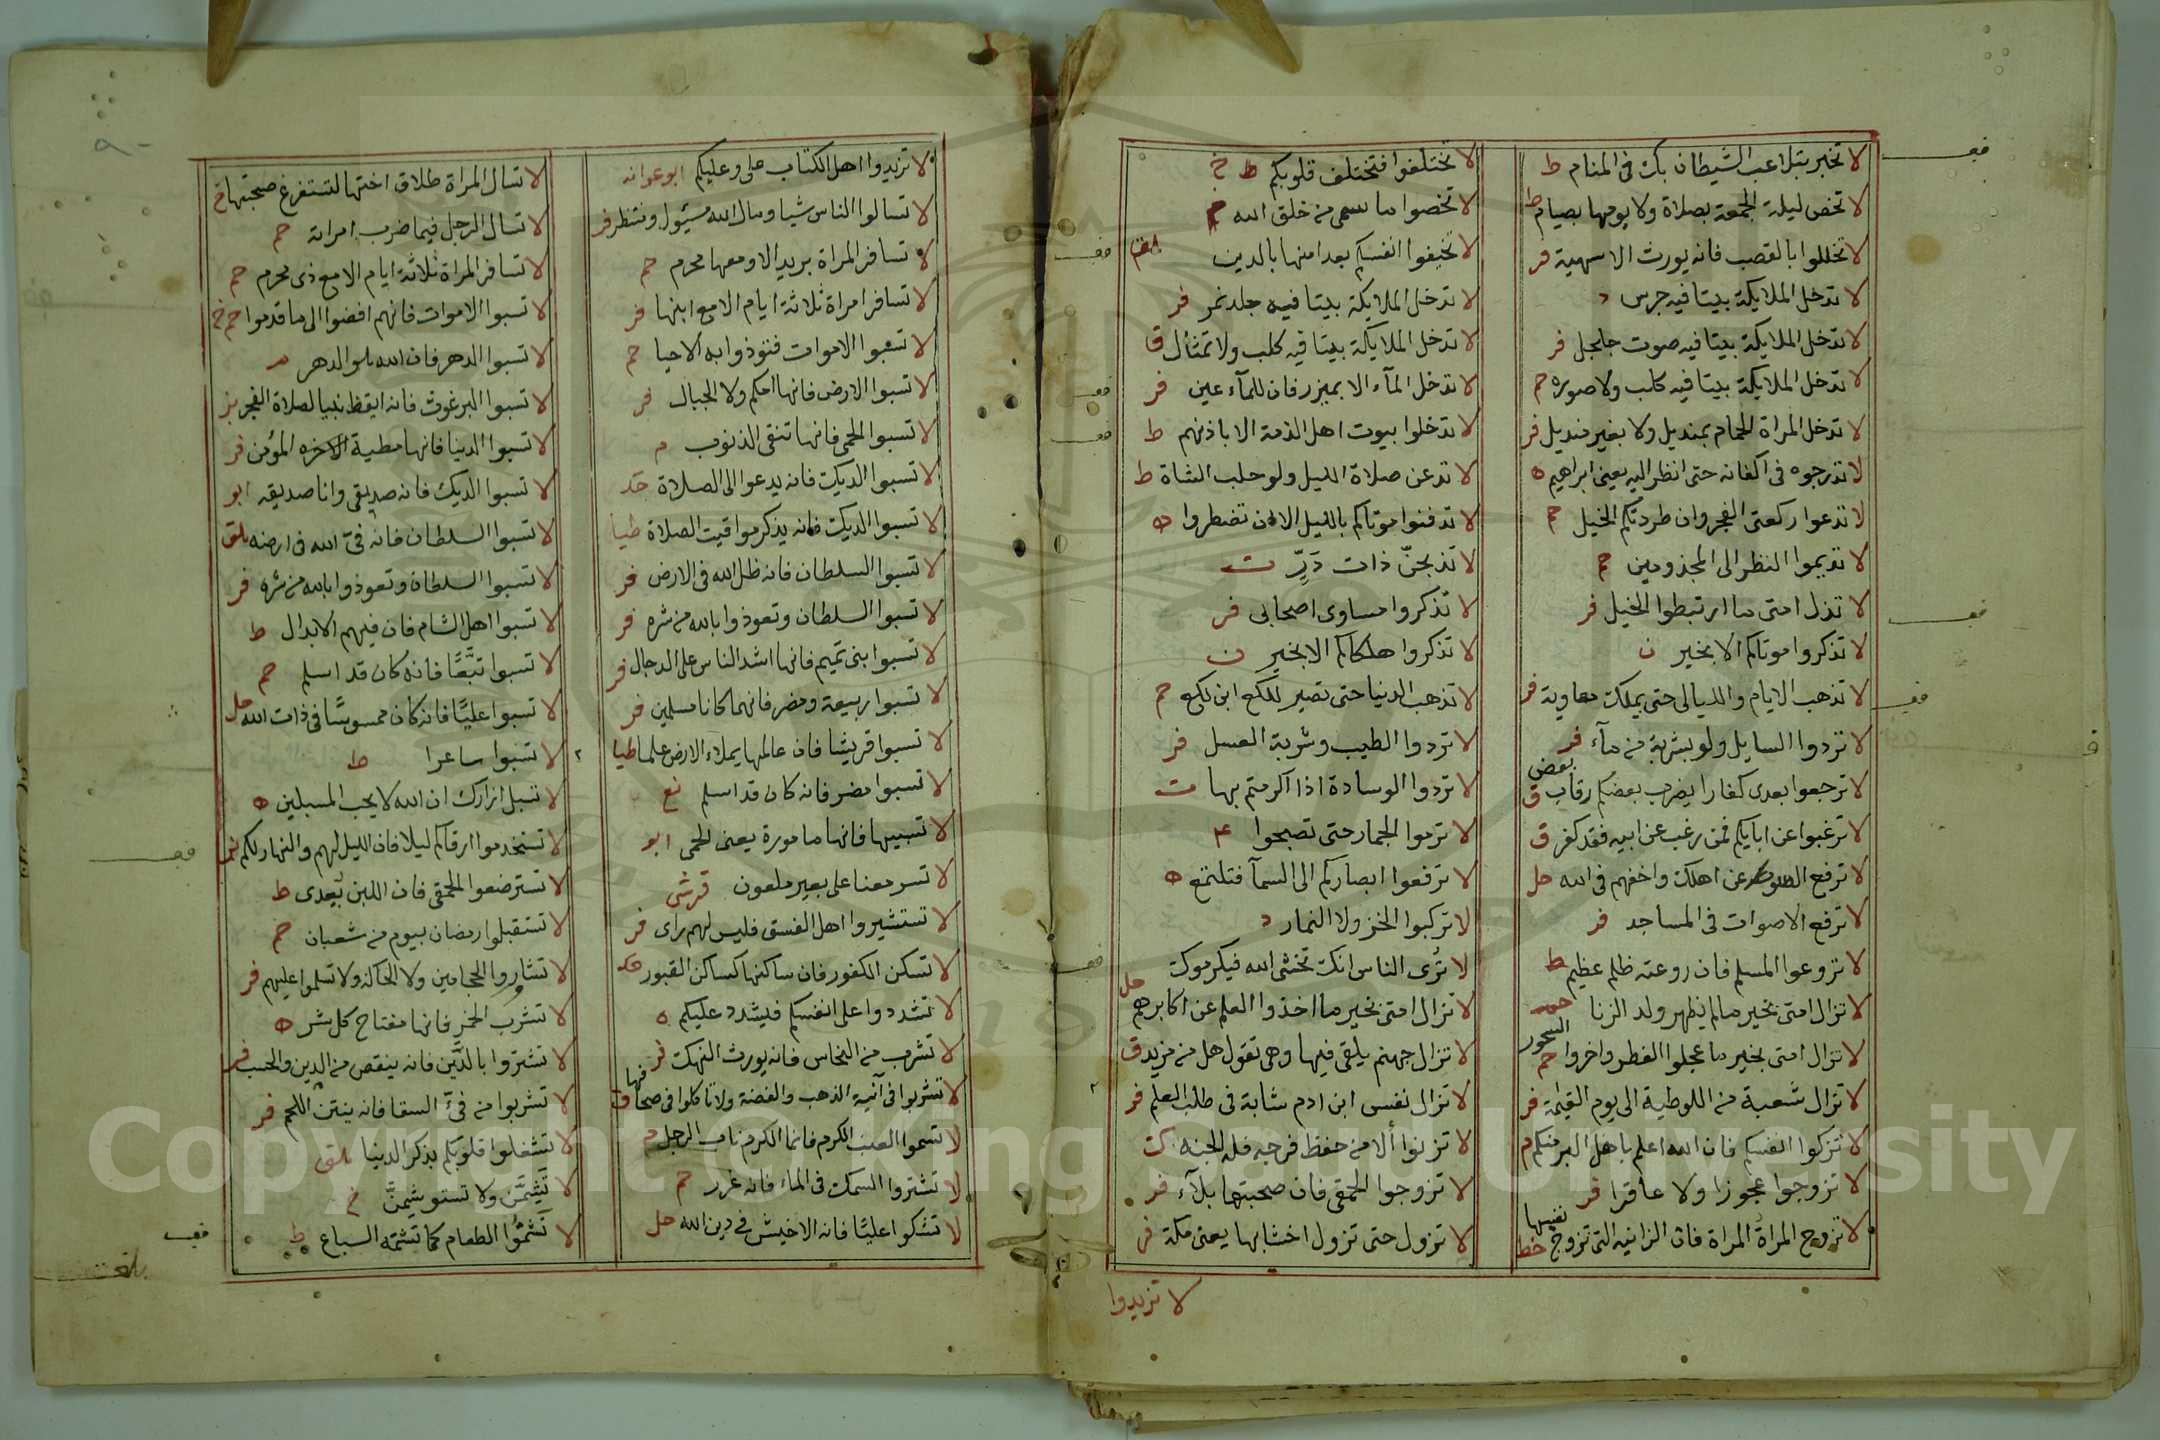 لا تخبر بتلاعب الشيطان بك في المنام ط
لا تخص ليلة الجمعة بصلاة ولا يومها بصيام ط
لا تخللوا بالقصب فانه يورث الاسهية فر
لا تدخل الملايكة بيتا فيه جرس د
لا تدخل الملايكة بيتا فيه صوت جلجل فر
لا تدخل الملايكة بيتا فيه كلب ولا صوره حم
لا تدخل المراة الحمام بمنديل ولا بغير منديل فر
لا تدرجوه في اكفانه حتى انظر اليه يعنى ابراهيم ه
لا تدعوا ركعتى الفجر وان طردتكم الخيل حم
لا تديموا النظر الى المجذومين حم
لا تذل امتى ما ارتبطوا الخيل فر
لا تذكروا موتاكم الا بخير ن
لا تذهب الايام والليالى حتى يملك معاوية فر
لا تردوا السايل ولو بشربة من مآء فر
لا ترجعوا بعدى كفارا يضرب بعضكم رقاب بعض ق
لا ترغبوا عن ابايكم فمن رغب عن ابيه فقد كفر ق
لا ترفع السوط عن اهلك واخفهم في الله حل
لا ترفع الاصوات في المساجد فر
لا تروعوا المسلم فان روعته ظلم عظيم ط
لا تزال امتى بخير مالم يظهر ولد الزنا
لا تزال امتى بخير ما عجلوا الفطر واخروا السحور حم
لا تزال شعبة من اللوطية الى يوم القيمة فر
لا تزكوا انفسكم فان الله اعلم باهل البر منكم م
لا تزوجوا عجوزا ولا عاقرا فر
لا تزوج المراة المراة فان الزانيه التى تزوج نفسها خط
لا تختلفوا فتختلف قلوبكم ط خ
لا تخصوا ما سمى من خلق الله
لا تخيفوا انفسكم بعد امنها بالدين
لا تدخل الملايكة بيتا فيه جلد نمر فر
لا تدخل الملايكة بيتا فيه كلب ولا تمثال ق
لا تدخل المآء الا بميزر فان للمآء عين فر
لا تدخلوا بيوت اهل الذمة الا باذنهم ط
لا تدعن صلاة الليل ولو حلب الشاة ط
لا تدفنوا موتاكم بالليل الا ان تضطروا ه
لا تذبحن ذات دَرٍّ ت
لا تذكروا مساوى اصحابى فر
لا تذكروا هلكاكم الا بخير ن
لا تذهب الدنيا حتى تصير للكع ابن لكع حم
لا تردوا الطيب وشربة العسل فر
لا تردوا الوسادة اذا اكرمتم بها ت
لا ترموا الجمار حتى تصبحوا ٤
لا ترفعوا ابصاركم الى السمآ فتلتمع ه
لا تركبوا الخز ولا النمار د
لا تُرى الناس انك تخشى الله فيكرموك حل
لا تزال امتى بخير ما اخذوا العلم عن اكابرهم
لا تزال جهنم يلقى فيها وهى تقول هل من مزيد ق
لا تزال نفس ابن ادم شابة في طلب العلم فر
لا تزنوا ألا من حفظ فرجه فله الجنه ك
لا تزوجوا الحمقى فان صحبتها بلآء فر
لا تزول حتى تزول اخشابها يعنى مكة فر
لا تزيدوا
لا تزيدوا اهل الكتاب على وعليكم ابو عوانه
لا تسالوا الناس شيا ومال الله مسئول ومنتظر فر
لا تسافر المراة بريدا الا ومعها محرم حم
لا تسافر امراة ثلاثة ايام الا مع ابنها فر
لا تسبوا الاموات فتوذوا به الاحيا حم
لا تسبوا الارض فانها امكم ولا الجبال فر
لا تسبوا الحمى فانها تنقى الذنوب م
لا تسبوا الديك فانه يدعوا الى الصلاة
لا تسبوا الديك فانه يذكر مواقيت الصلاة طيا
لا تسبوا السلطان فانه ظل الله في الارض فر
لا تسبوا السلطان وتعوذوا بالله من شره فر
لا تسبوا بنى تميم فانها اشد الناس على الدجال فر
لا تسبوا ربيعة ومضر فانهما كانا مسلمين فر
لا تسبوا قريشا فان عالمها يملاء الارض علما طيا
لا تسبوا مضر فانه كان قد اسلم
لا تسبيها فانها مامورة يعنى الحمى ابو
لا تسر معنا على بعير ملعون قرشى
لا تستشيروا اهل الفسق فليس لهم راى فر
لا تسكن الكفور فان ساكنها كساكن القبور
لا تشددوا على انفسكم فيشدد عليكم ه
لا تشرب من النحاس فانه يورث النهكت فر
لا تشربوا في آنية الذهب والفضة ولا تاكلوا في صحافها ق
لا تسموا العنب الكرم فانما الكرم ناب الرجل م
لا تشتروا السمك في الماء فانه غرر حم
لا تشكوا عليًا فانه الاخيشن في دين الله حل
لا تسال المراة طلاق اختها لتستفرغ صحبتها خ
لا تسال الرجل فيما ضرب امراته حم
لا تسافر المراة ثلاثة ايام الا مع ذى محرم حم
لا تسبوا الاموات فانهم افضوا الى ما قدموا حم خ
لا تسبوا الدهر فان الله هو الدهر م
لا تسبوا البرغوث فانه ايقظ نبيا لصلاة الفجر بز
لا تسبوا الدنيا فانها مطية الاخره المؤمن فر
لا تسبوا الديك فانه صديقى وانا صديقه ابو
لا تسبوا السلطان فانه فئ الله في ارضه
لا تسبوا السلطان وتعوذوا بالله من شره فر
لا تسبوا اهل الشام فان فيهم الابدال ط
لا تسبوا تبَّعًا فانه كان قد اسلم حم
لا تسبوا عليًا فانه كان ممسوسًا في ذات الله حل
لا تسبوا ساعرا ط
لا تسبل ازارك ان الله لا يحب المسبلين ه
لا تستخدموا ارقاكم ليلا فان الليل لهم والنهار لكم
لا تسترضعوا الحمقى فان اللبن يُعدى ط
لا تستقبلوا رمضان بيوم من شعبان
لا تشاروا الحجامين ولا الحاكه ولا تسلموا عليهم فر
لا تشرب الخمر فانها مفتاح كل شر ه
لا تشتروا بالدَّين فانه ينقص من الدين والحسب فر
لا تشربوا من فئ السقا فانه ينتن اللحم فر
لا تشغلوا قلوبكم بذكر الدنيا
لا تَشِمنَ ولا تستوشمنَّ خ
لا تَشُمُّوا الطعام كما تشمه السباع ط